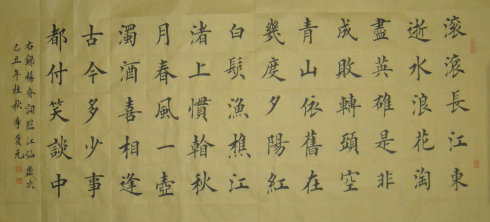 滚滚長江東
逝水浪花淘
盡英雄是非
成敗轉頭空
青山依舊在
幾度夕陽紅
白髮漁樵江
渚上慣看秋
月春風一壺
濁酒喜相逢
古今多少事
都付笑談中
右錄楊眘詞臨江仙歲次
己丑年桂秋李貴元